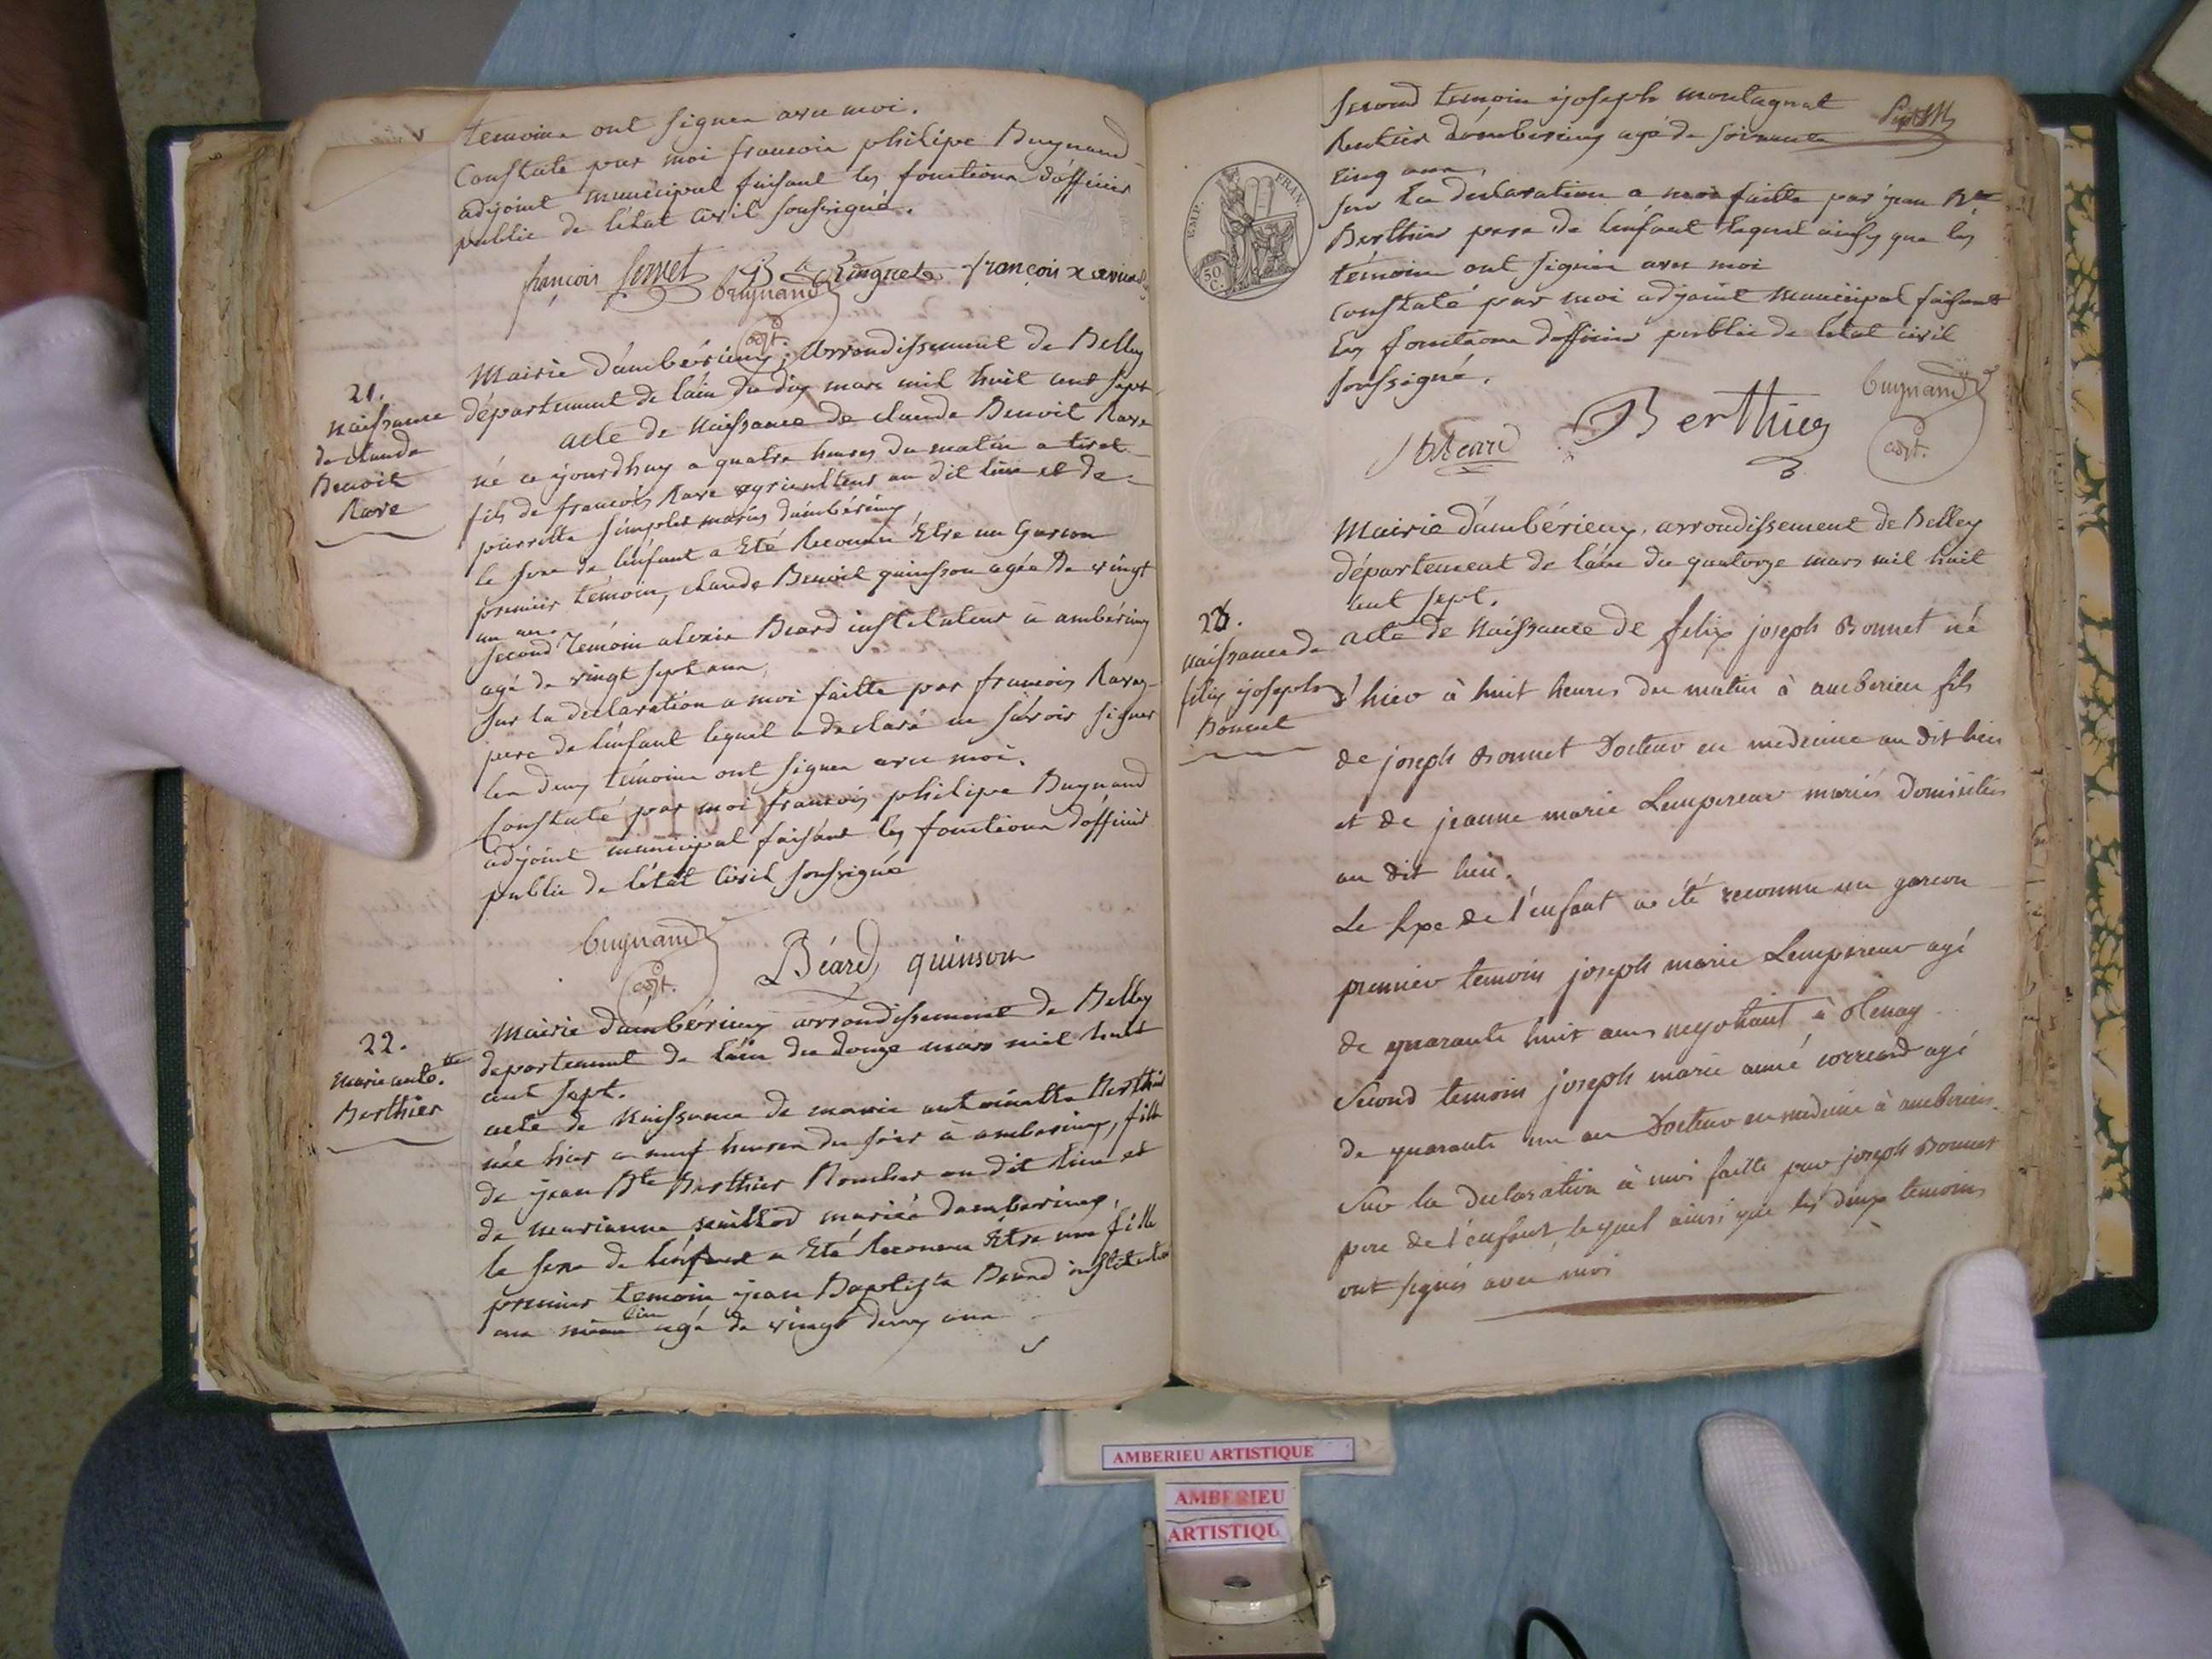 temoins ont signer avec moi.
Constaté par moi francois philipe Bugnand
adjoint municipal faisant les fonctions d'officier
public de l'état civil soussigné.
françois Serret
bugnand adjt.
21.
naissance
de claude
Benoit
Rave
Mairie d'ambérieux, arrondissement de Belley
département de l'ain du dix mars mil huit cent sept
acte de naissance de claude Benoit Rave
né ce jourdhuy a quatre heures du matin a tiret
fils de francois Rave agriculteur au dit lieu et de
pierrette simplet mariés d'ambérieux
le sexe de l'enfant a Eté Reconnu Etre un Garcon
premier témoin, claude Benoit quinsson agée De vingt
un ans
second témoin alexis Beard instituteur à ambérieux
agé de vingt sept ans,
sur la déclaration a moi faitte par francois Rave
pere de l'enfant lequel a declaré ne sávoir signer
les deux témoins ont signer avec moi.
Constaté par moi francois philipe Bugnand
adjoint municipal faisant les fonctions d'officier
public de l'état civil soussigné
bugnand adjt. Béard quinson
22.
Marie anto.tte
Berthier
Mairie d'ambérieux arrondissement de Belley
departement de l'ain du douze mars mil huit
cent sept.
acte de Naissance de marie antoinette Berthier
née hier a neuf heures du soir à amberieux, fille
de jean Bte Berthier Boucher au dit lieu et
de marianne mariés d'amberieux,
le sexe de l'enfant a Eté Reconnu Etre une fille
premier temoin jean Baptiste Beard instituteur
au même lieu agé de vingt deux ans
second temoin joseph montagnat
Rentier d'ambérieux agé de soixante
cinq ans,
sur la declaration a moi faitte par jean Bte
Berthier pere de l'enfant lequel ainsy que les
témoins ont signer avec moi
constaté par moi adjoint municipal faisant
les fonctions d'officier public de l'état civil
soussigné.
EMP. FRAN.
50 C.
Béard Berthier bugnand adjt.
23.
naissance de
felix joseph
Bonnet
Mairie d'ambérieux, arrondissement de Belley
département de l'ain du quatorze mars mil huit
cent sept.
acte de Naissance de felix joseph Bonnet né
d'hier à huit heures du matin à amberieu fils
de joseph Bonnet Docteur en medecine au dit lieu
et de jeanne marie Lempereur mariés Domiciliés
au dit lieu.
Le sexe de l'enfant a été reconnu un garcon
premier temoin joseph marie Lempereur agé
de quarante huit ans negotiant à Tenay
Second temoin joseph marie aimé agé
de quarante un an Docteur en medecine à amberieu.
Sur la declaration à moi faitte par joseph Bonnet
pere de l'enfant, lequel ainsi que les deux temoins
ont signés avec moi
AMBERIEU ARTISTIQUE
AMBERIEU
ARTISTIQU